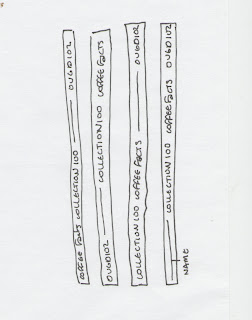 COFFEE FACTS COLLECTION 100 — OUGD102
OUGD102 — COLLECTION 100 COFFEE FACTS
COLLECTION 100 COFFEE FACTS — OUGD102
— COLLECTION 100 COFFEE FACTS OUGD102
NAME